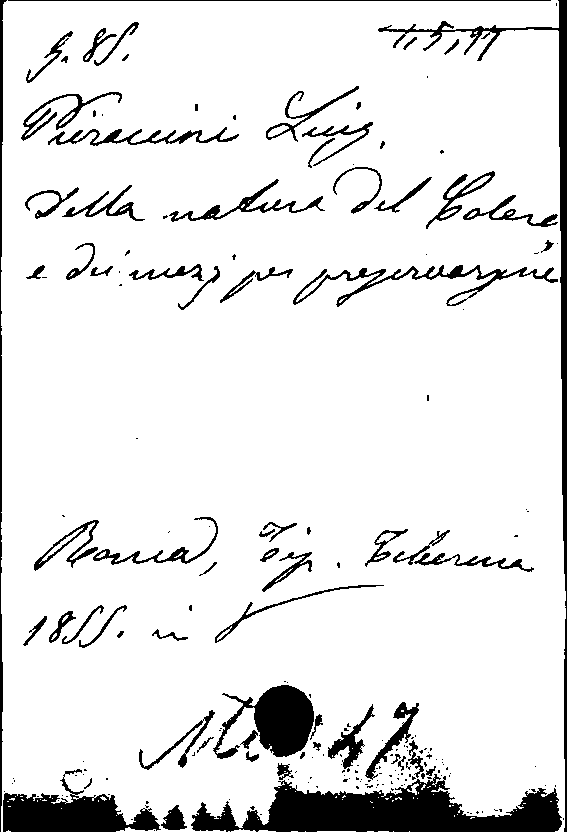 G. 85. 1,5,97
Pieraccini Luigi.
Della natura del Colera
e dei mezzi per preservarsene
Roma, Tip. Tiberina
1855. in 8
47